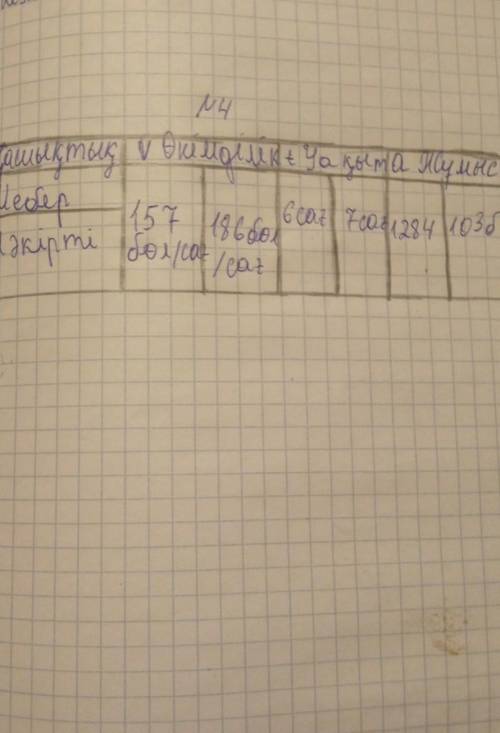 №4
ашықтық v Өнімділік t Уақыт А Жұмыс
Шебер
әкірті
157 бөл/сағ
186бөл /сағ
6сағ
7сағ
1284
103б